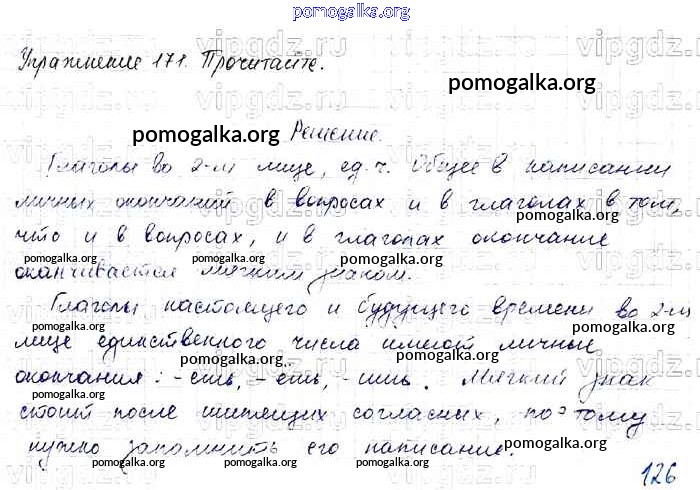 pomogalka.org
Упражнение 171. Прочитайте.
pomogalka.org
pomogalka.org
Решение.
Глаголы во 2-м лице, ед. ч. Общее в написании
личных окончаний в вопросах и в глаголах в том,
pomogalka.org
что и в вопросах, и в глаголах окончание
оканчивается мягким знаком.
Глаголы настоящего и будущего времени во 2-м
pomogalka.org pomogalka.org pomogalka.org
лице единственного числа имеют личные
pomogalka.org pomogalka.org
окончания: -ешь, -ёшь, -ишь. Мягкий знак
стоит после шипящих согласных, поэтому
pomogalka.org pomogalka.org pomogalka.org
нужно запомнить его написание.
pomogalka.org pomogalka.org pomogalka.org
126